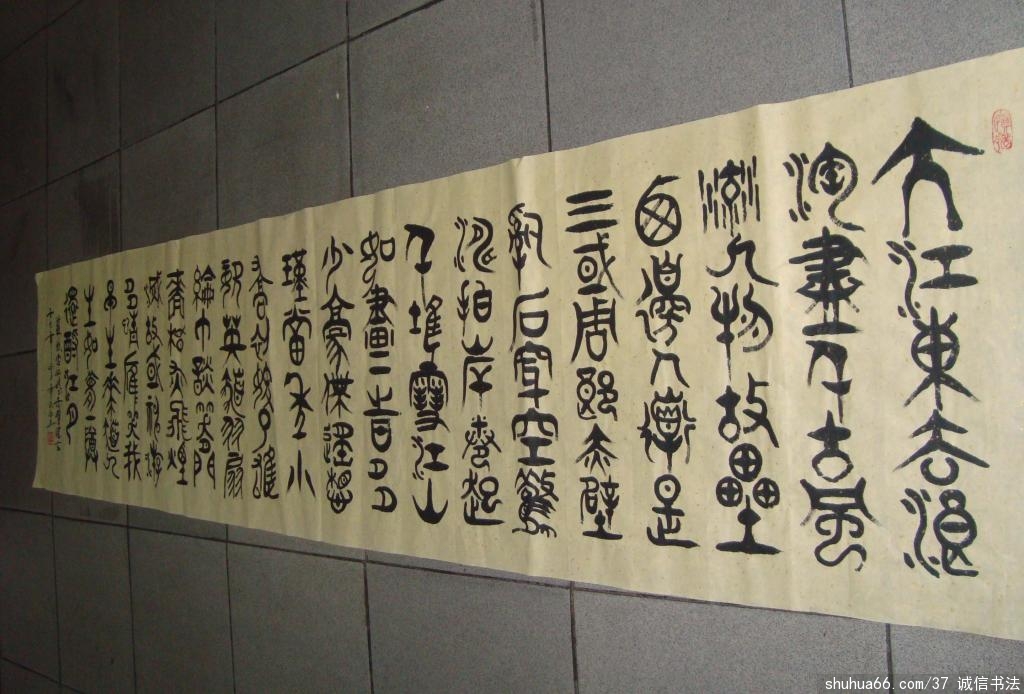 大江東去浪
淘盡千古風
流人物故壘
西邊人道是
三或周郎赤壁
亂石穿空驚
濤拍岸卷起
千堆雪江山
如畫一時多
少豪傑遙想
瑾當年小
喬初嫁了雄
姿英發羽扇
綸巾談笑間
檣櫓灰飛煙
滅故國神游
多情應笑我
早生華髮人
生如夢一尊
還酹江月
shuhua66.com/37 诚信书法